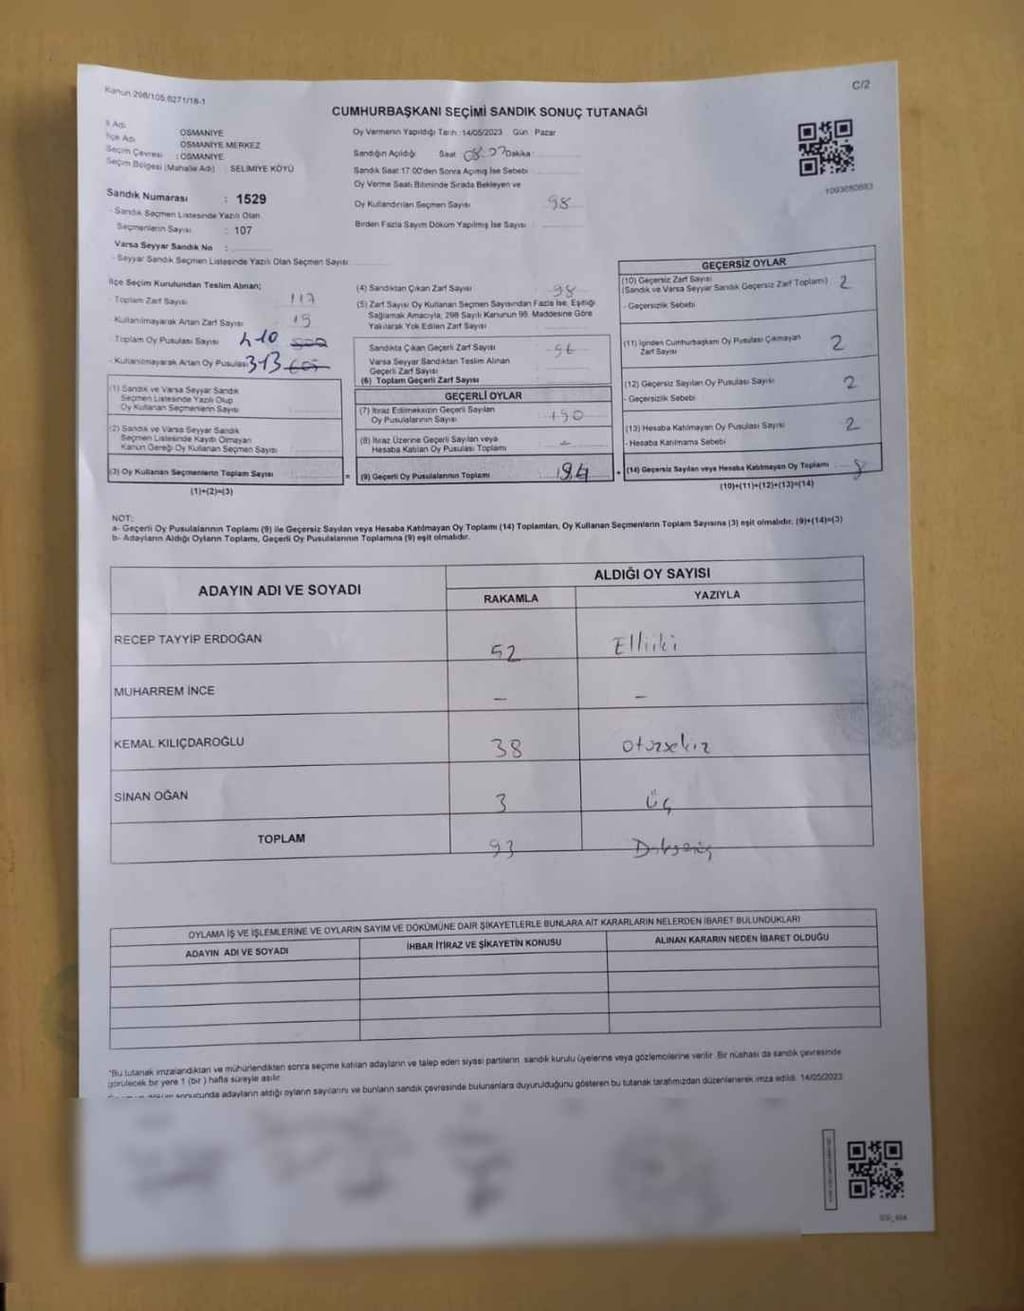 Kanun 298/105.6271/18-1
C/2
CUMHURBAŞKANI SEÇİMİ SANDIK SONUÇ TUTANAĞI
İl Adı OSMANİYE
İlçe Adı OSMANİYE MERKEZ
Seçim Çevresi : OSMANİYE
Seçim Bölgesi (Mahalle Adı) SELİMİYE KÖYÜ
Sandık Numarası : 1529
- Sandık Seçmen Listesinde Yazılı Olan
Seçmenlerin Sayısı : 107
Varsa Seyyar Sandık No :
- Seyyar Sandık Seçmen Listesinde Yazılı Olan Seçmen Sayısı
Oy Vermenin Yapıldığı Tarih : 14/05/2023 Gün : Pazar
Sandığın Açıldığı Saat Dakika
Sandık Saat 17:00'den Sonra Açılmış İse Sebebi
Oy Verme Saati Bitiminde Sırada Bekleyen ve
Oy Kullandırılan Seçmen Sayısı 98
Birden Fazla Sayım Döküm Yapılmış İse Sayısı
İlçe Seçim Kurulundan Teslim Alınan;
- Toplam Zarf Sayısı 117
- Kullanılmayarak Artan Zarf Sayısı 19
- Toplam Oy Pusulası Sayısı 410
- Kullanılmayarak Artan Oy Pusulası 313
(1) Sandık ve Varsa Seyyar Sandık
Seçmen Listesinde Yazılı Olup
Oy Kullanan Seçmenlerin Sayısı
(2) Sandık ve Varsa Seyyar Sandık
Seçmen Listesinde Kayıtlı Olmayan
Kanun Gereği Oy Kullanan Seçmen Sayısı
(3) Oy Kullanan Seçmenlerin Toplam Sayısı =
(1)+(2)=(3)
(4) Sandıktan Çıkan Zarf Sayısı 98
(5) Zarf Sayısı Oy Kullanan Seçmen Sayısından Fazla İse, Eşitliği
Sağlamak Amacıyla, 298 Sayılı Kanunun 98. Maddesine Göre
Yakılarak Yok Edilen Zarf Sayısı
Sandıkta Çıkan Geçerli Zarf Sayısı 96
Varsa Seyyar Sandıktan Teslim Alınan
Geçerli Zarf Sayısı
(6) Toplam Geçerli Zarf Sayısı
GEÇERLİ OYLAR
(7) İtiraz Edilmeksizin Geçerli Sayılan
Oy Pusulalarının Sayısı 190
(8) İtiraz Üzerine Geçerli Sayılan veya
Hesaba Katılan Oy Pusulası Toplamı -
(9) Geçerli Oy Pusulalarının Toplamı 94 +
GEÇERSİZ OYLAR
(10) Geçersiz Zarf Sayısı
(Sandık ve Varsa Seyyar Sandık Geçersiz Zarf Toplamı) 2
- Geçersizlik Sebebi
(11) İçinden Cumhurbaşkanı Oy Pusulası Çıkmayan
Zarf Sayısı 2
(12) Geçersiz Sayılan Oy Pusulası Sayısı 2
- Geçersizlik Sebebi
(13) Hesaba Katılmayan Oy Pusulası Sayısı 2
- Hesaba Katılmama Sebebi
(14) Geçersiz Sayılan veya Hesaba Katılmayan Oy Toplamı 8
(10)+(11)+(12)+(13)=(14)
NOT:
a- Geçerli Oy Pusulalarının Toplamı (9) ile Geçersiz Sayılan veya Hesaba Katılmayan Oy Toplamı (14) Toplamları, Oy Kullanan Seçmenlerin Toplam Sayısına (3) eşit olmalıdır. (9)+(14)=(3)
b- Adayların Aldığı Oyların Toplamı, Geçerli Oy Pusulalarının Toplamına (9) eşit olmalıdır.
ADAYIN ADI VE SOYADI
ALDIĞI OY SAYISI
RAKAMLA YAZIYLA
RECEP TAYYİP ERDOĞAN 52 Elliiki
MUHARREM İNCE - -
KEMAL KILIÇDAROĞLU 38 otuzsekiz
SİNAN OĞAN 3 Üç
TOPLAM 93
OYLAMA İŞ VE İŞLEMLERİNE VE OYLARIN SAYIM VE DÖKÜMÜNE DAİR ŞİKAYETLERLE BUNLARA AİT KARARLARIN NELERDEN İBARET BULUNDUKLARI
ADAYIN ADI VE SOYADI İHBAR İTİRAZ VE ŞİKAYETİN KONUSU ALINAN KARARIN NEDEN İBARET OLDUĞU
*Bu tutanak imzalandıktan ve mühürlendikten sonra seçime katılan adayların ve talep eden siyasi partilerin sandık kurulu üyelerine veya gözlemcilerine verilir. Bir nüshası da sandık çevresinde
görülecek bir yere 1 (bir) hafta süreyle asılır.
sonucunda adayların aldığı oyların sayılarını ve bunların sandık çevresinde bulunanlara duyurulduğunu gösteren bu tutanak tarafımızdan düzenlenerek imza edildi. 14/05/2023